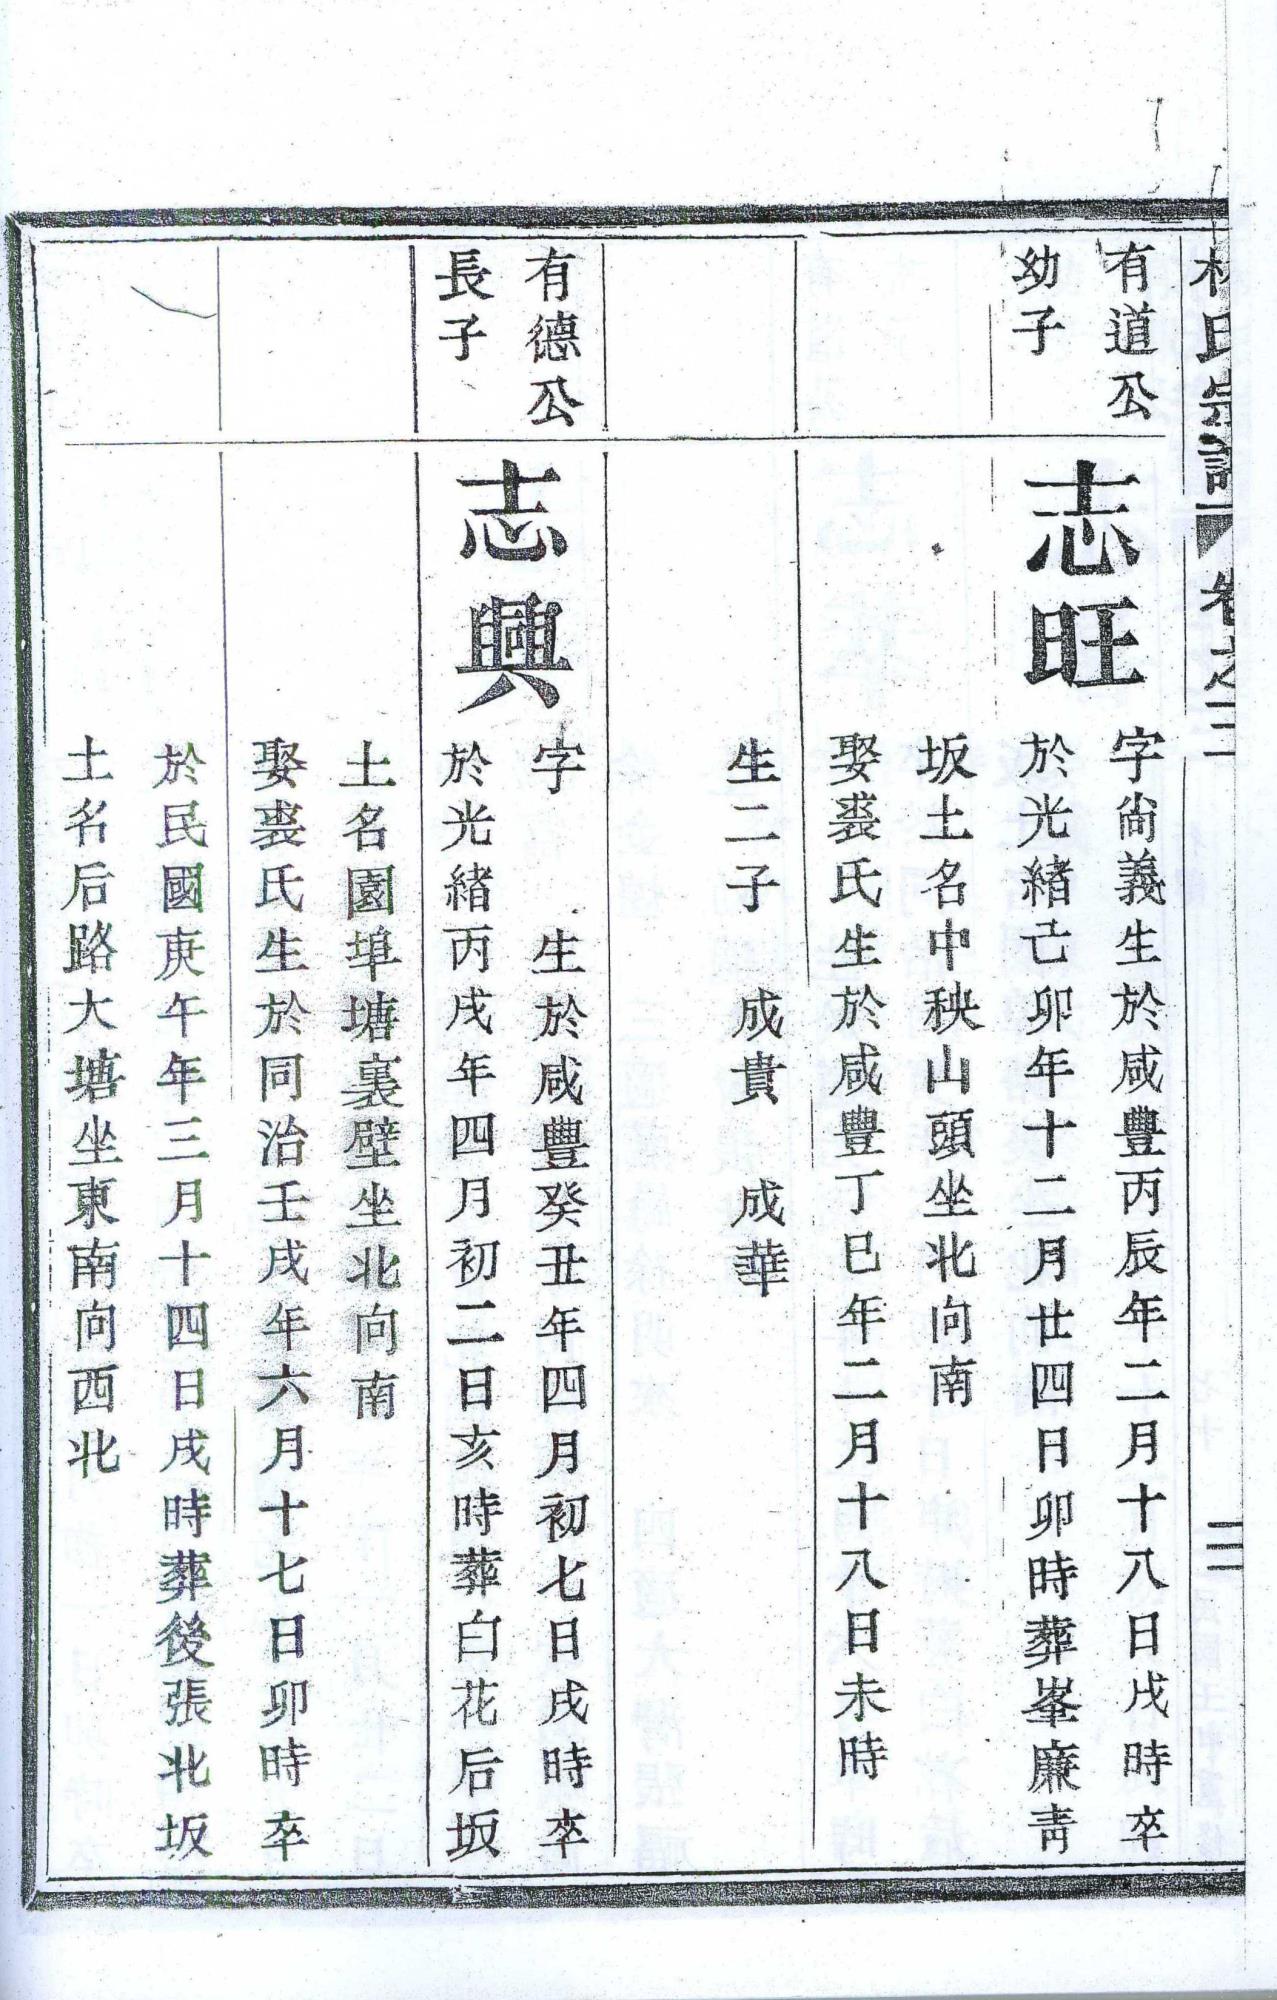 林氏宗譜 卷之三 二
有道公
幼子
志旺
字尚義生於咸豐丙辰年二月十八日戌時卒
於光緒己卯年十二月廿四日卯時葬峯廉青
坂土名中秧山頭坐北向南
娶裘氏生於咸豐丁巳年二月十八日未時
生二子 成貴 成華
有德公
長子
志興
字 生於咸豐癸丑年四月初七日戌時卒
於光緒丙戌年四月初二日亥時葬白花后坂
土名園埠塘裏壁坐北向南
娶裘氏生於同治壬戌年六月十七日卯時卒
於民國庚午年三月十四日戌時葬後張北坂
土名后路大塘坐東南向西北